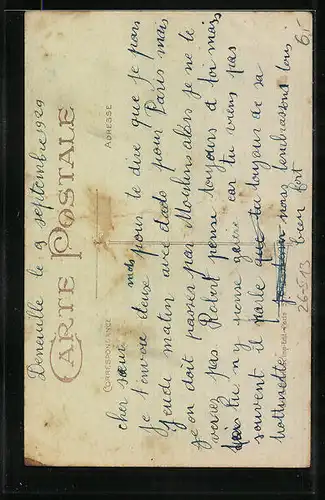 Deneuille le 9 septembre 1929
CARTE POSTALE
CORRESPONDANCE
ADRESSE
cher sœur
Je t'envoie deux mots pour te dire que je pars
Jeudi matin avec dado pour Paris mais
je on doit passer par Moulins alors je ne te
verrez pas Robert pense toujours à toi mais
tu n'y pense guère car tu viens pas
souvent il parle que tu toujour de sa
nous t'embrassons tous
bien fort
26-513
6,-